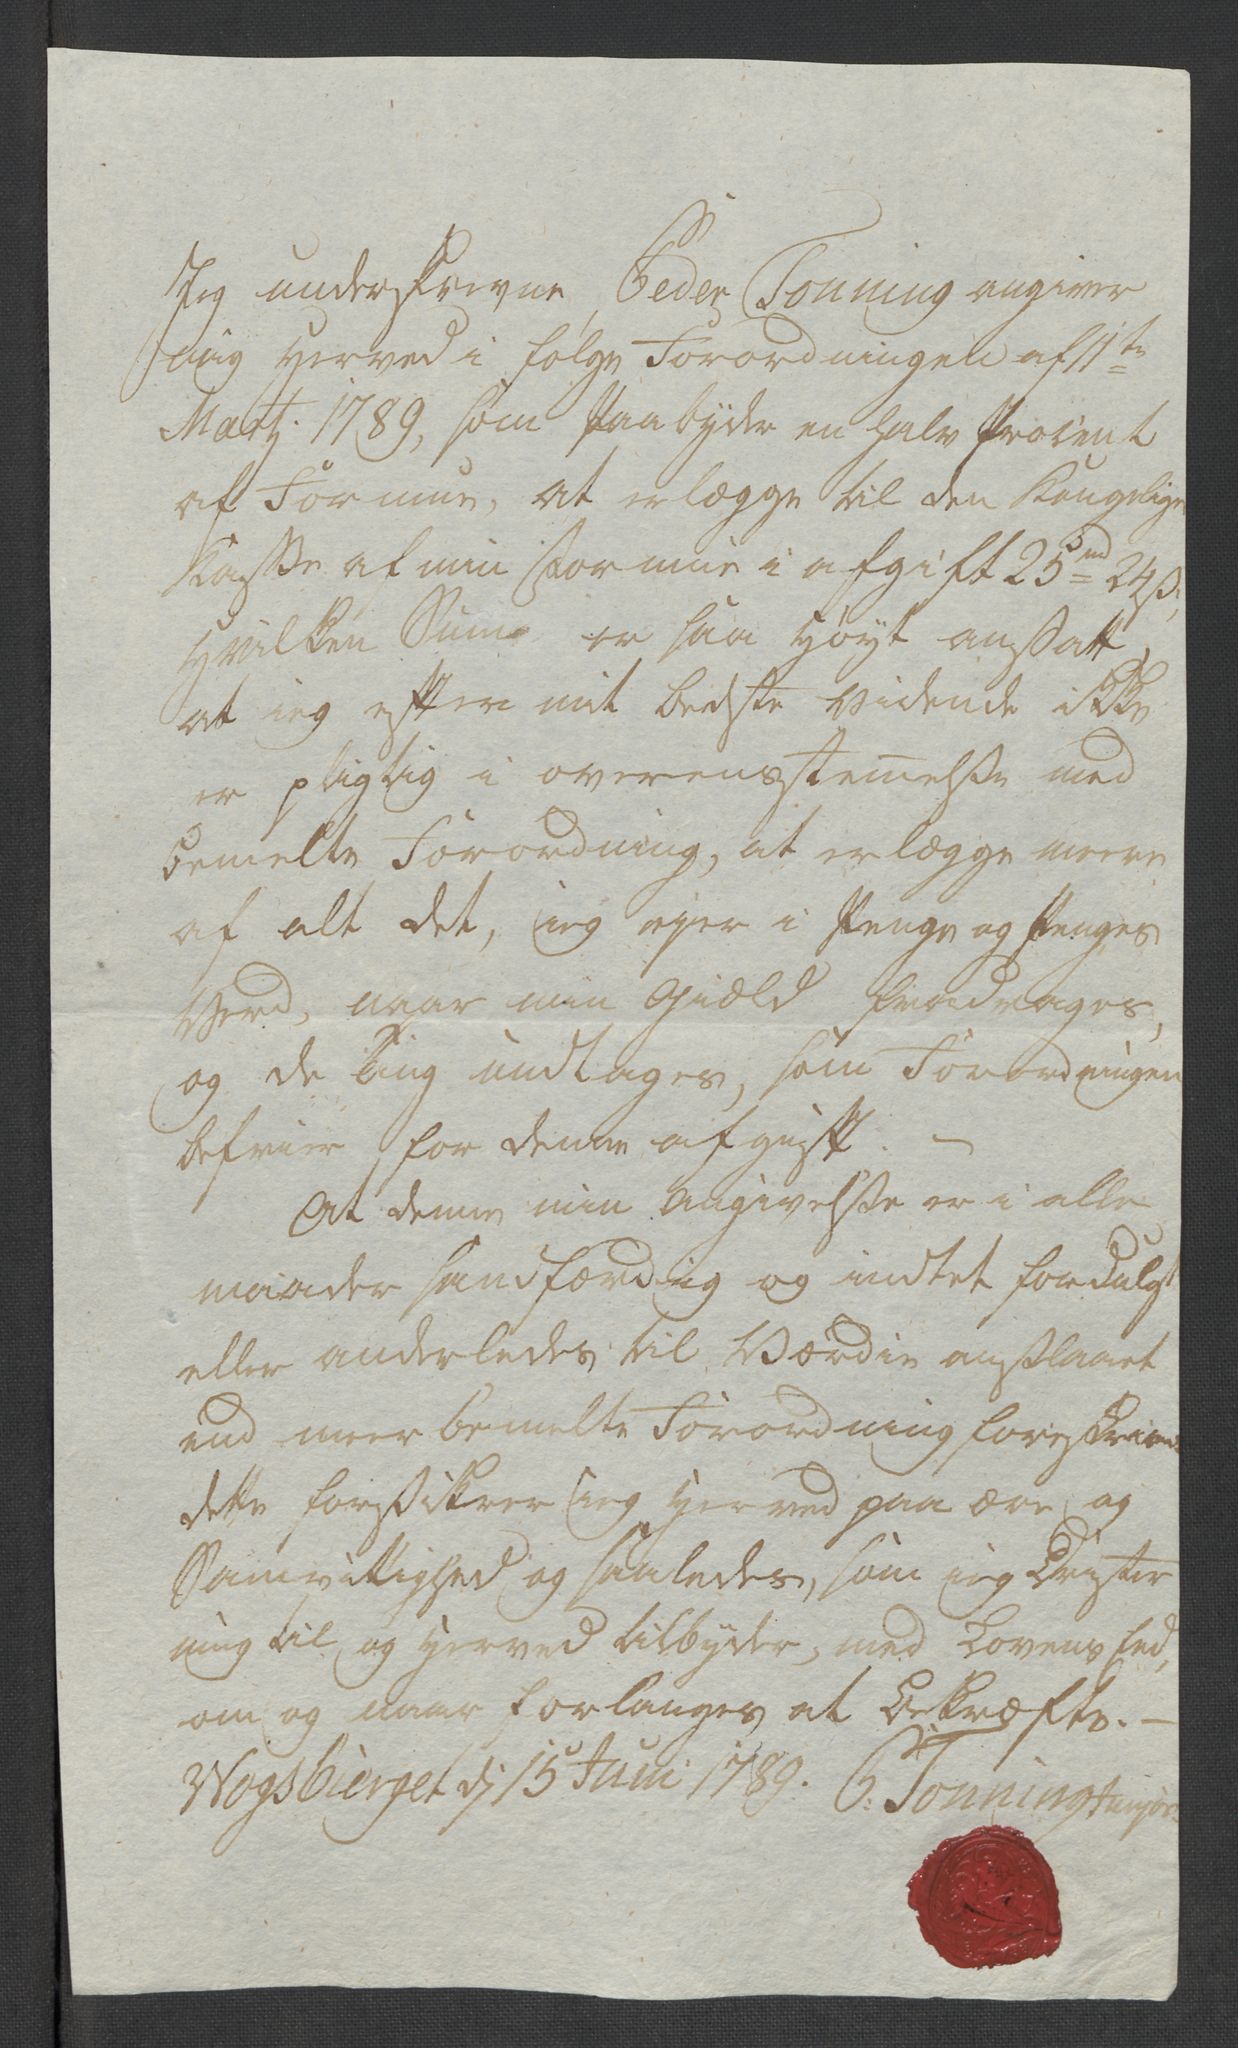 Jeg underskrevne, Peder Tonning angiver
mig herved i følge Forordningen af 11te
Martz. 1789, som Paabyder en halv Procent
af Formue, at erlægge til den Kongelige
Kasse af min Formue i afgift 25 rd 24 s,
hvilken Sum er saa høyt ansatt,
at ieg efter mit bedste vidende ikke
er pligtig i overensstemelse med
bemelte Forordning, at erlægge meere
af alt det, ieg ejer i Penge og Penges
Verd, naar min Giæld fradrages,
og de ting undtages, som Forordningen
befrier for denne afgift. —
At denne min Angivelse er i alle
maader sandfærdig og indtet fordulgt
eller anderledes til Værdie anslaaet
end meerbemelte Forordning foreskriver
dette forsikrer ieg herved paa ære og
Samvittighed og saaledes, som ieg trøster
mig til og herved tilbyder, med Lovens Eed,
om og naar forlanges at bekræfte. —
Wogsbierget d; 15 Juni 1789. P: Tonning Junjor.